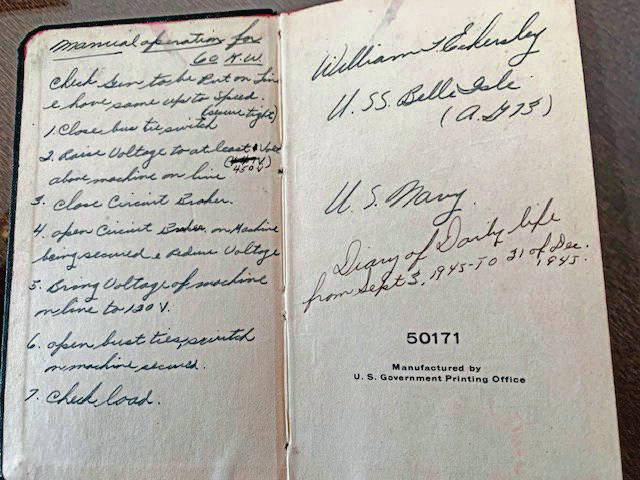 manual operation for
60 K.W.
Check Gen to be Put on Line
& have same up to Speed.
(secure tight)
1. Close bus tie switch
2. Raise Voltage to at least 1 Volt
above machine on line
450 V
3. Close Circuit Braker.
4. open Circuit Braker on Machine
being secured & Reduce Voltage
5. Bring Voltage of machine
on line to 120 V.
6. open bust ties switch
on machine secured.
7. Check load.
William F. Eckersley
U.S.S. Belle Isle
(A.G 73)
U.S. Navy.
Diary of Daily life
from Sept 3, 1945 - TO 31 of Dec.
1945.
50171
Manufactured by
U. S. Government Printing Office